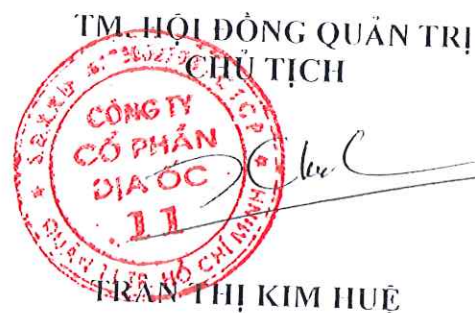 TM. HỘI ĐỒNG QUẢN TRỊ
CHỦ TỊCH
CÔNG TY
CỔ PHẦN
ĐỊA ỐC
11
QUẬN 11 TP. HỒ CHÍ MINH
TRẦN THỊ KIM HUỆ